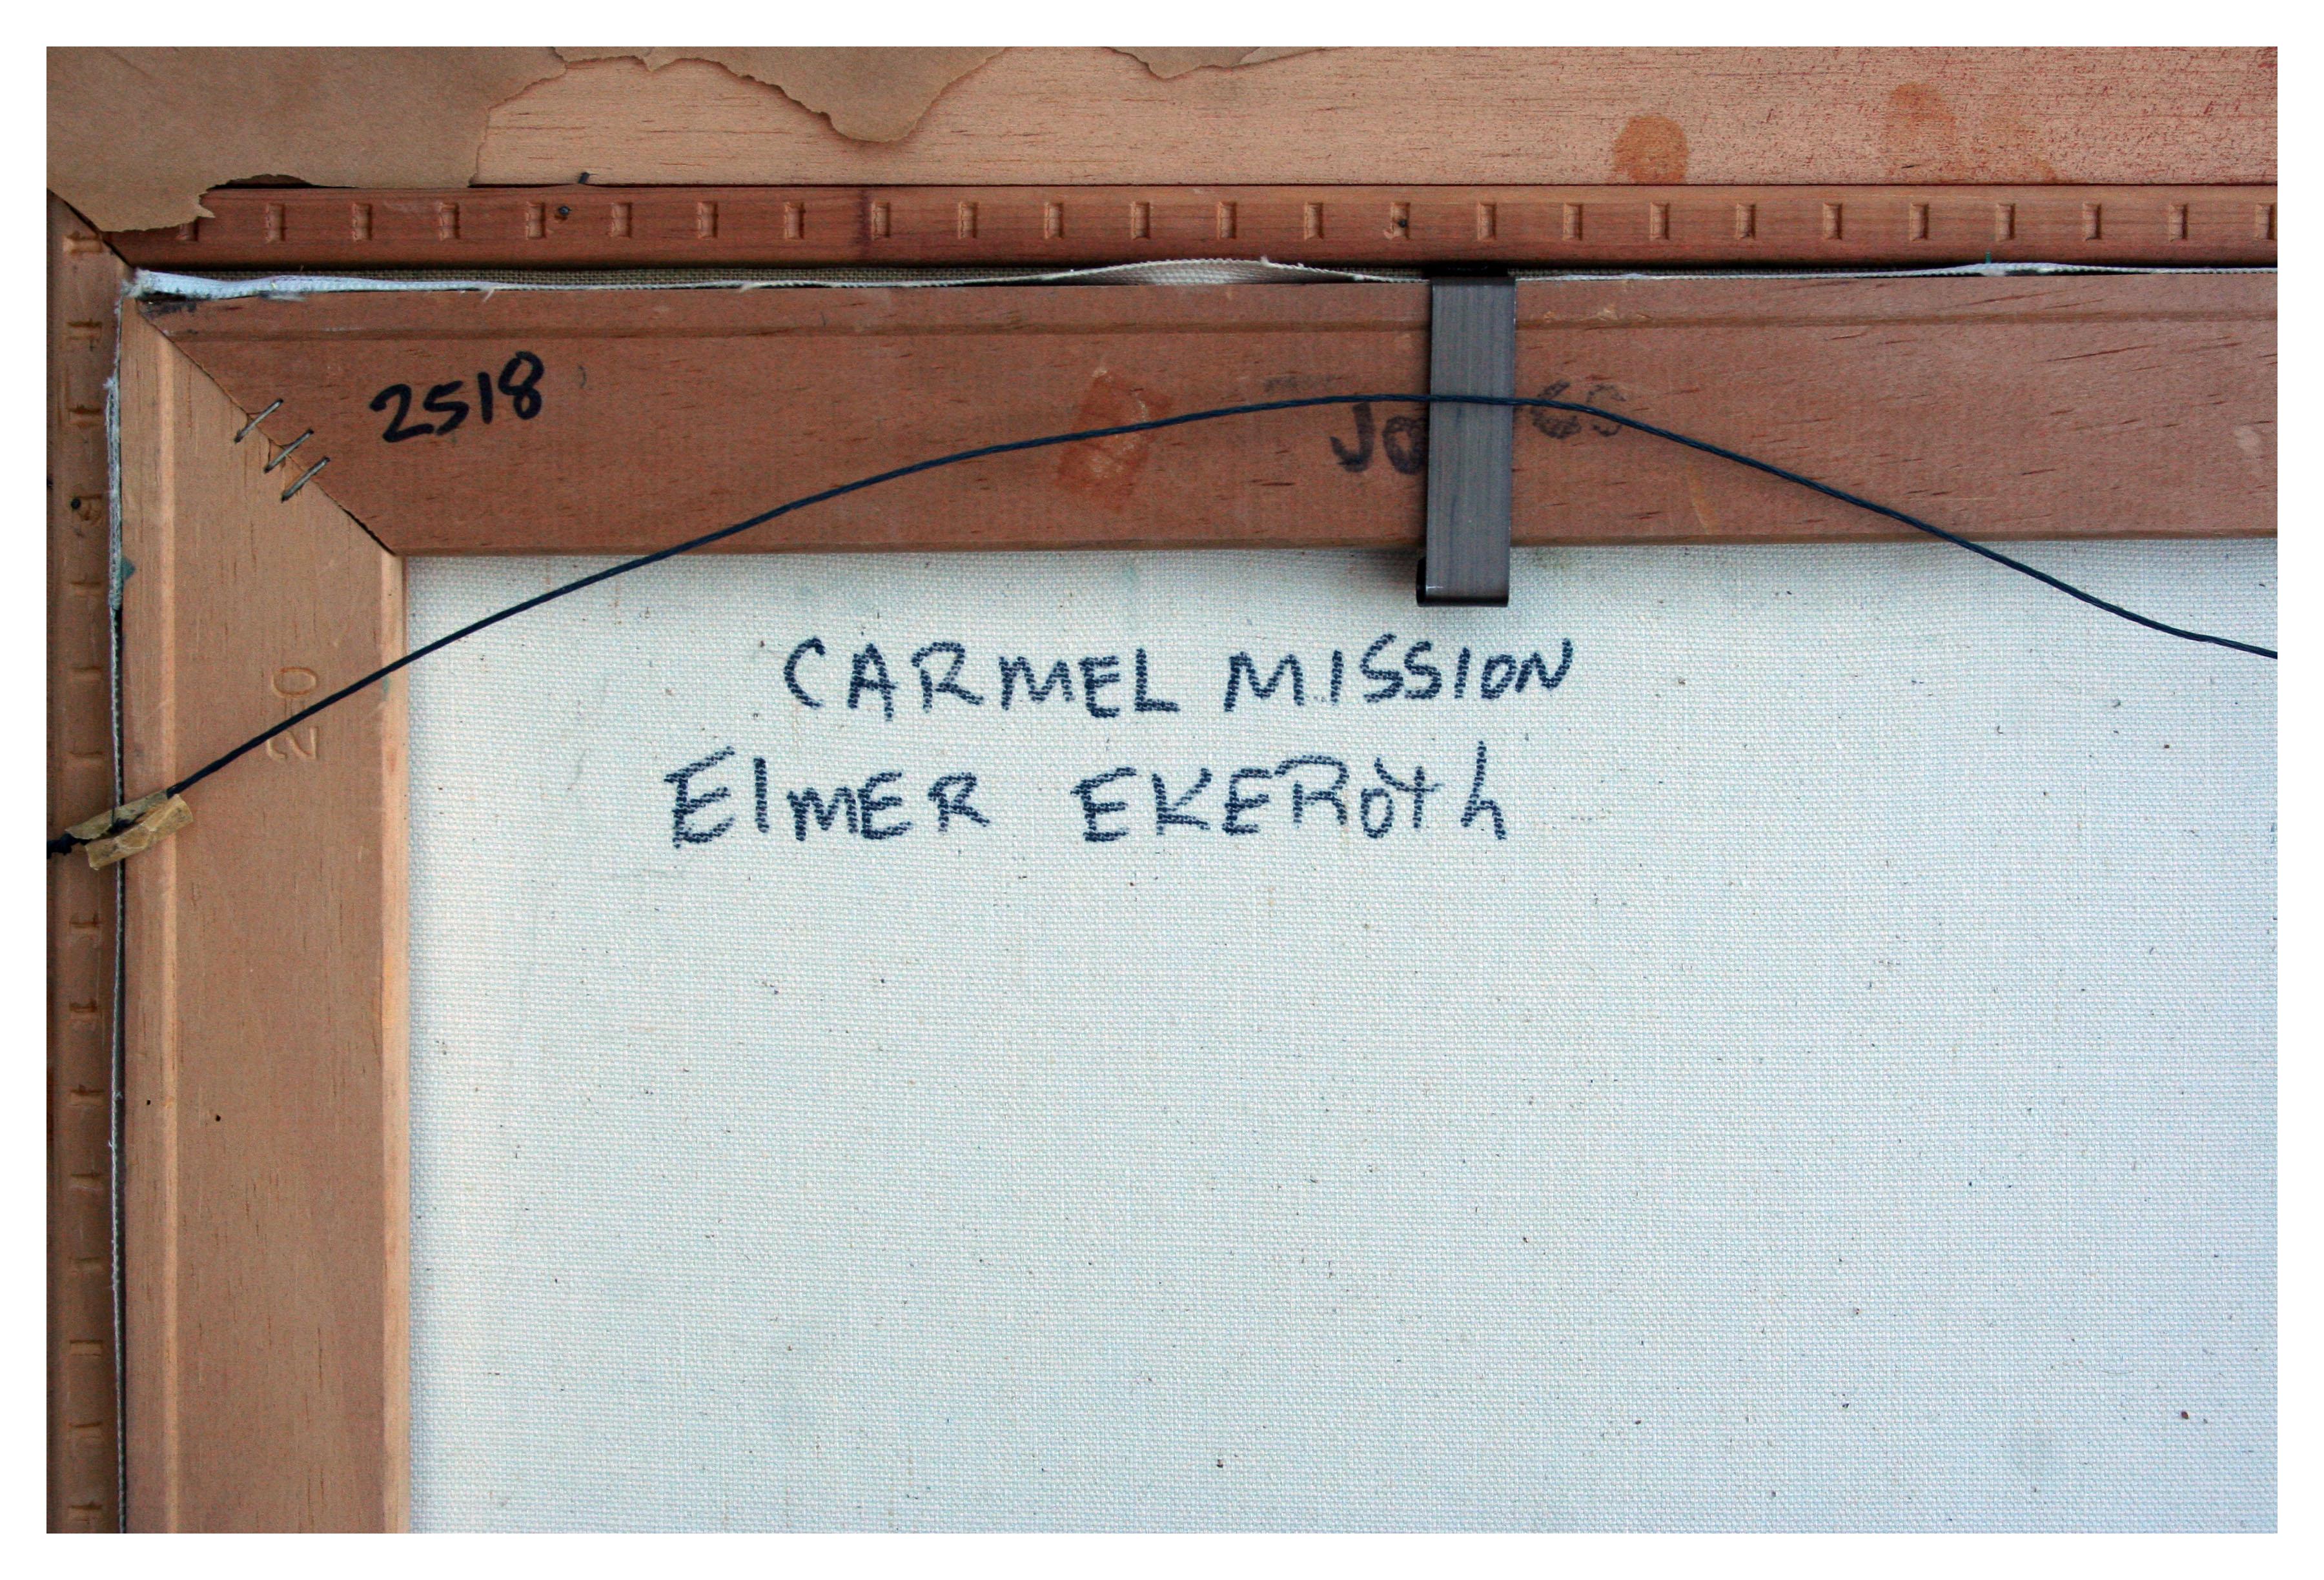 2518
20
CARMEL MISSION
ElmER EKEROth